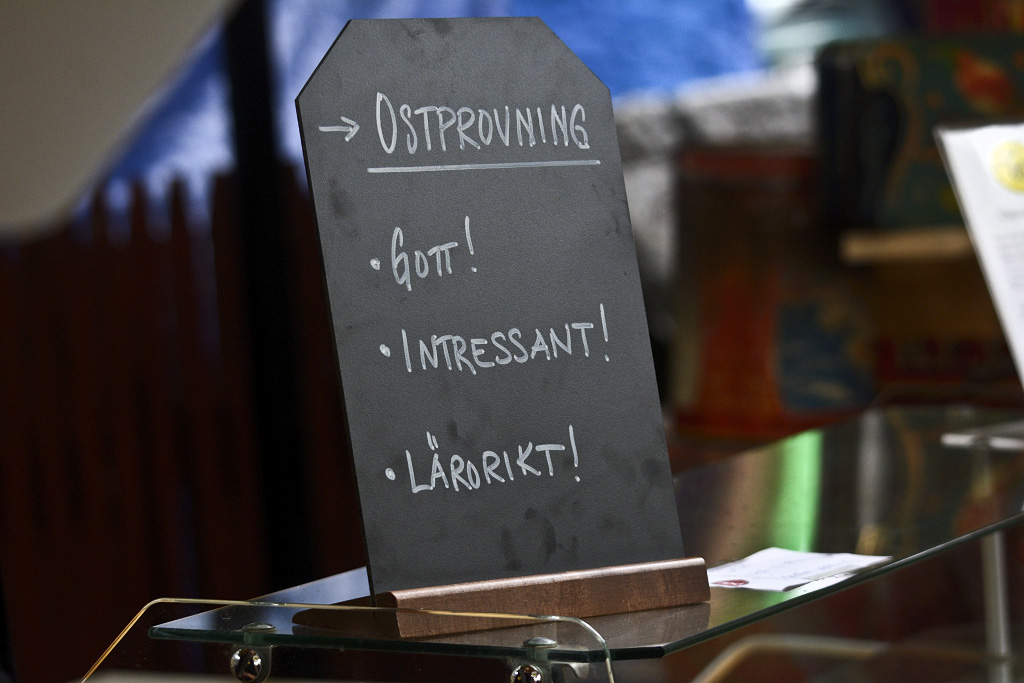 → OSTPROVNING
• GOTT!
• INTRESSANT!
• LÄRORIKT!